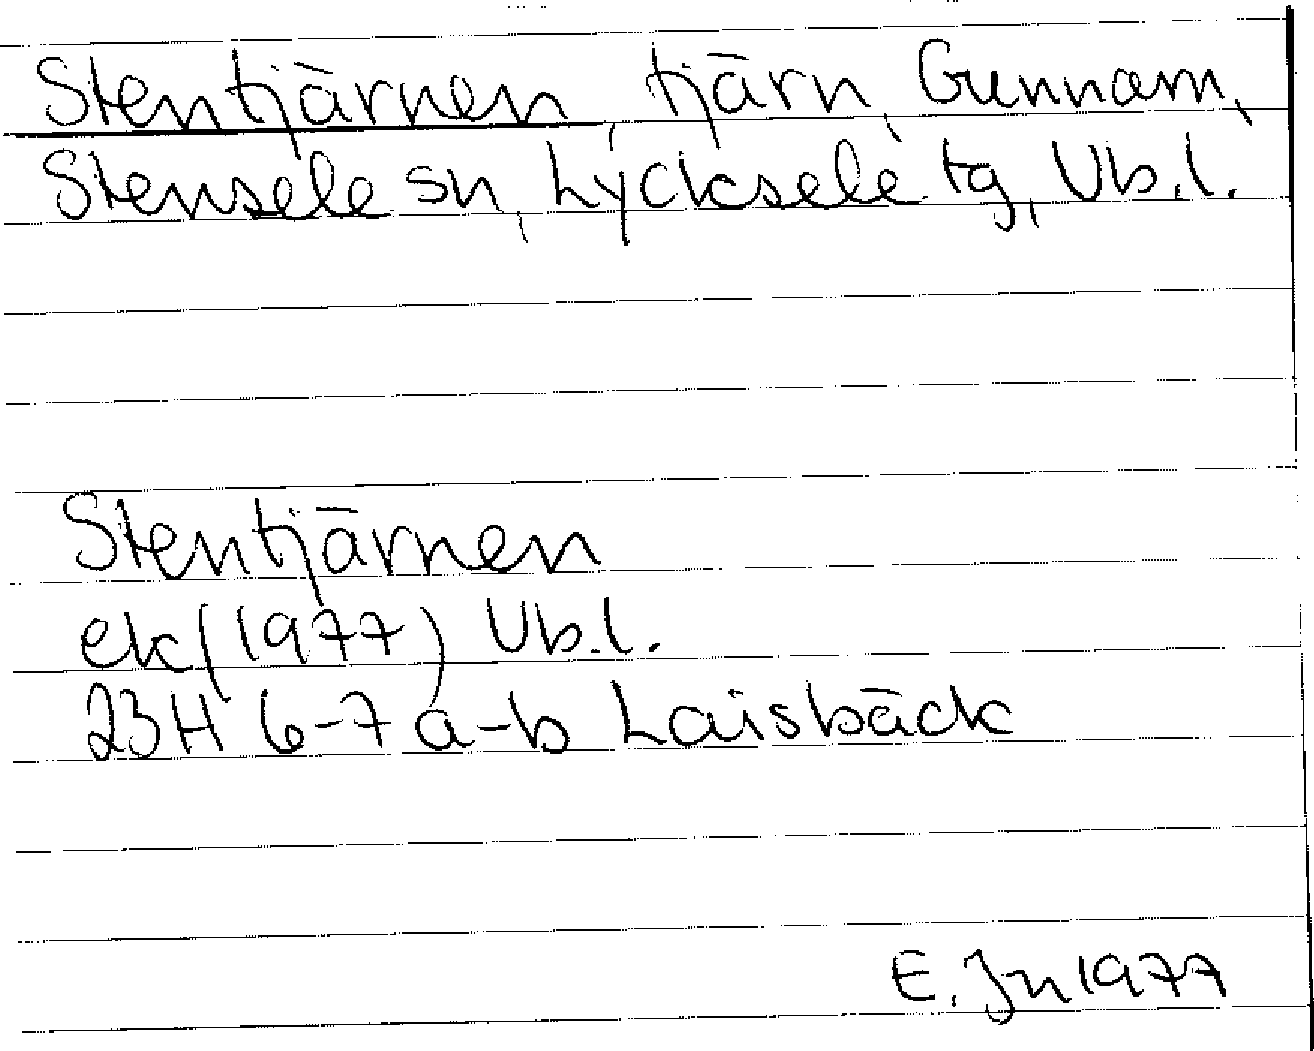 Stentjärnen, tjärn, Gunnarn,
Stensele sn, Lycksele tg, Vb.l.
Stentjärnen
ek(1977) Vb.l.
23H 6-7 a-b Laisbäck
E. Jn 1977